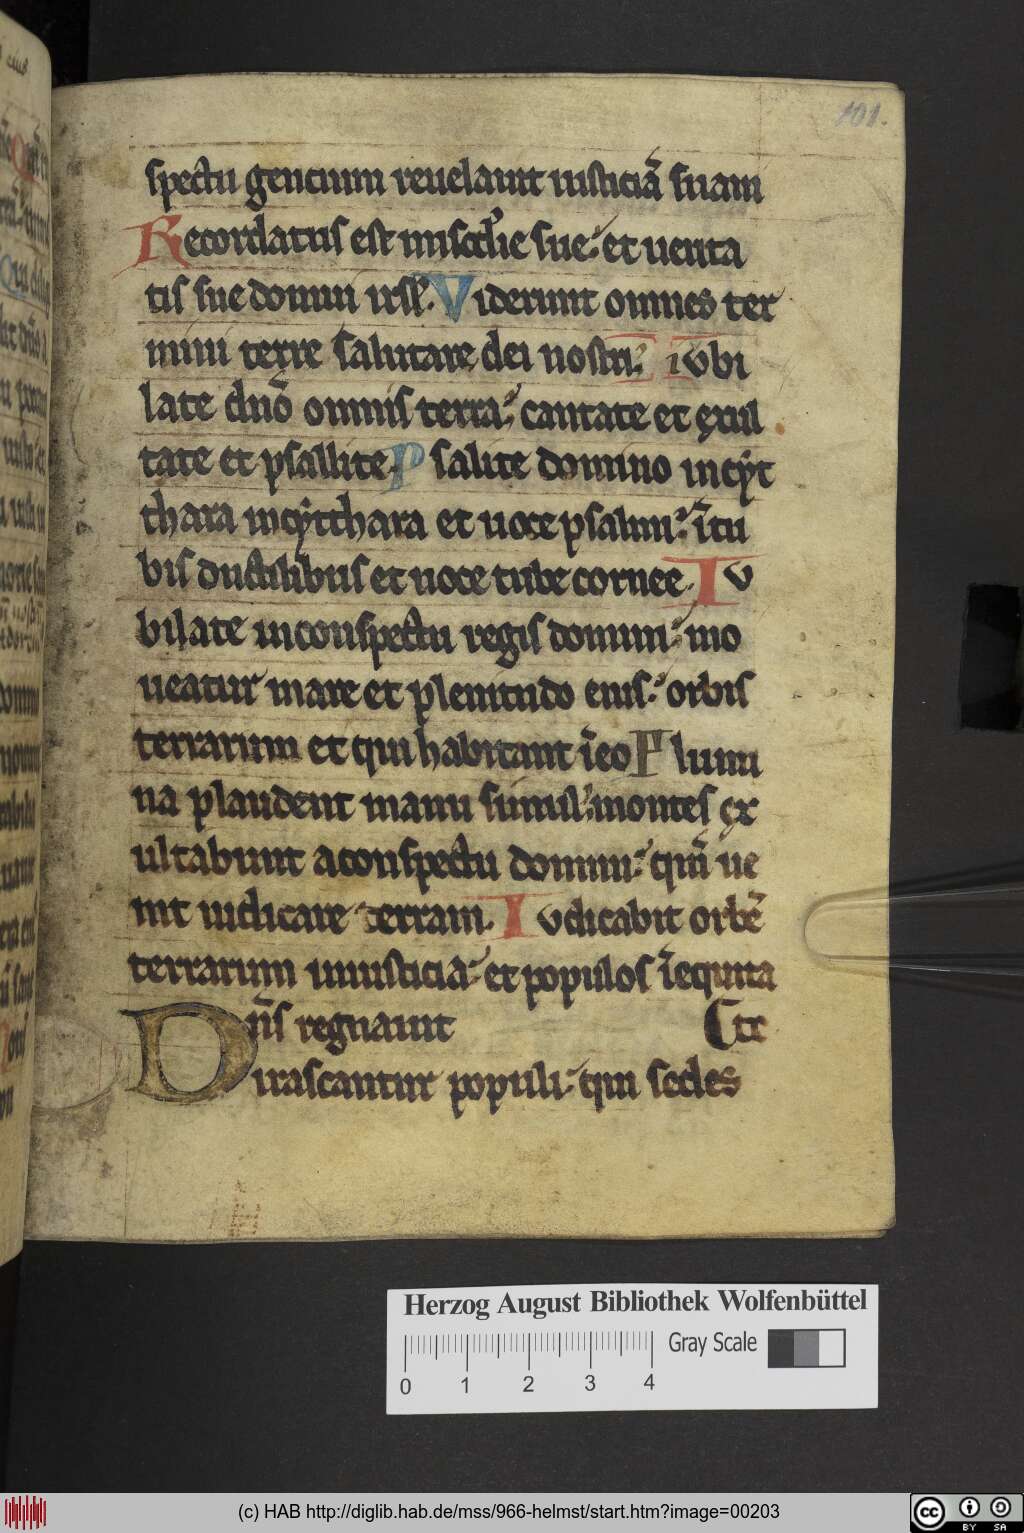 101.
spectu gencium reuelauit iusticiā suam
Recordatus est miscd̓ie sue et uerita
tis sue domui irsl̄. Viderunt omnes ter
mini terre salutare dei nostri. iubi
late dn̄o omnis terra cantate et exul
tate et psallite. Psalite domino incyt
thara incytthara et uoce psalmi ītu
bis ductilibus et uoce tube cornee. Iu
bilate inconspectu regis domini mo
ueatur mare et plenitudo eius orbis
terrarum et qui habitant īeo Flumi
na plaudent manu simul montes ex
ultabunt aconspectu domini qm̄ ue
nit iudicare terram. Iudicabit orbē
terrarum iniusticia et populos īequita
Dn̄s regnauit te
irascantur populi qui sedes
Herzog August Bibliothek Wolfenbüttel
Gray Scale
0 1 2 3 4
(c) HAB http://diglib.hab.de/mss/966-helmst/start.htm?image=00203
cc BY SA